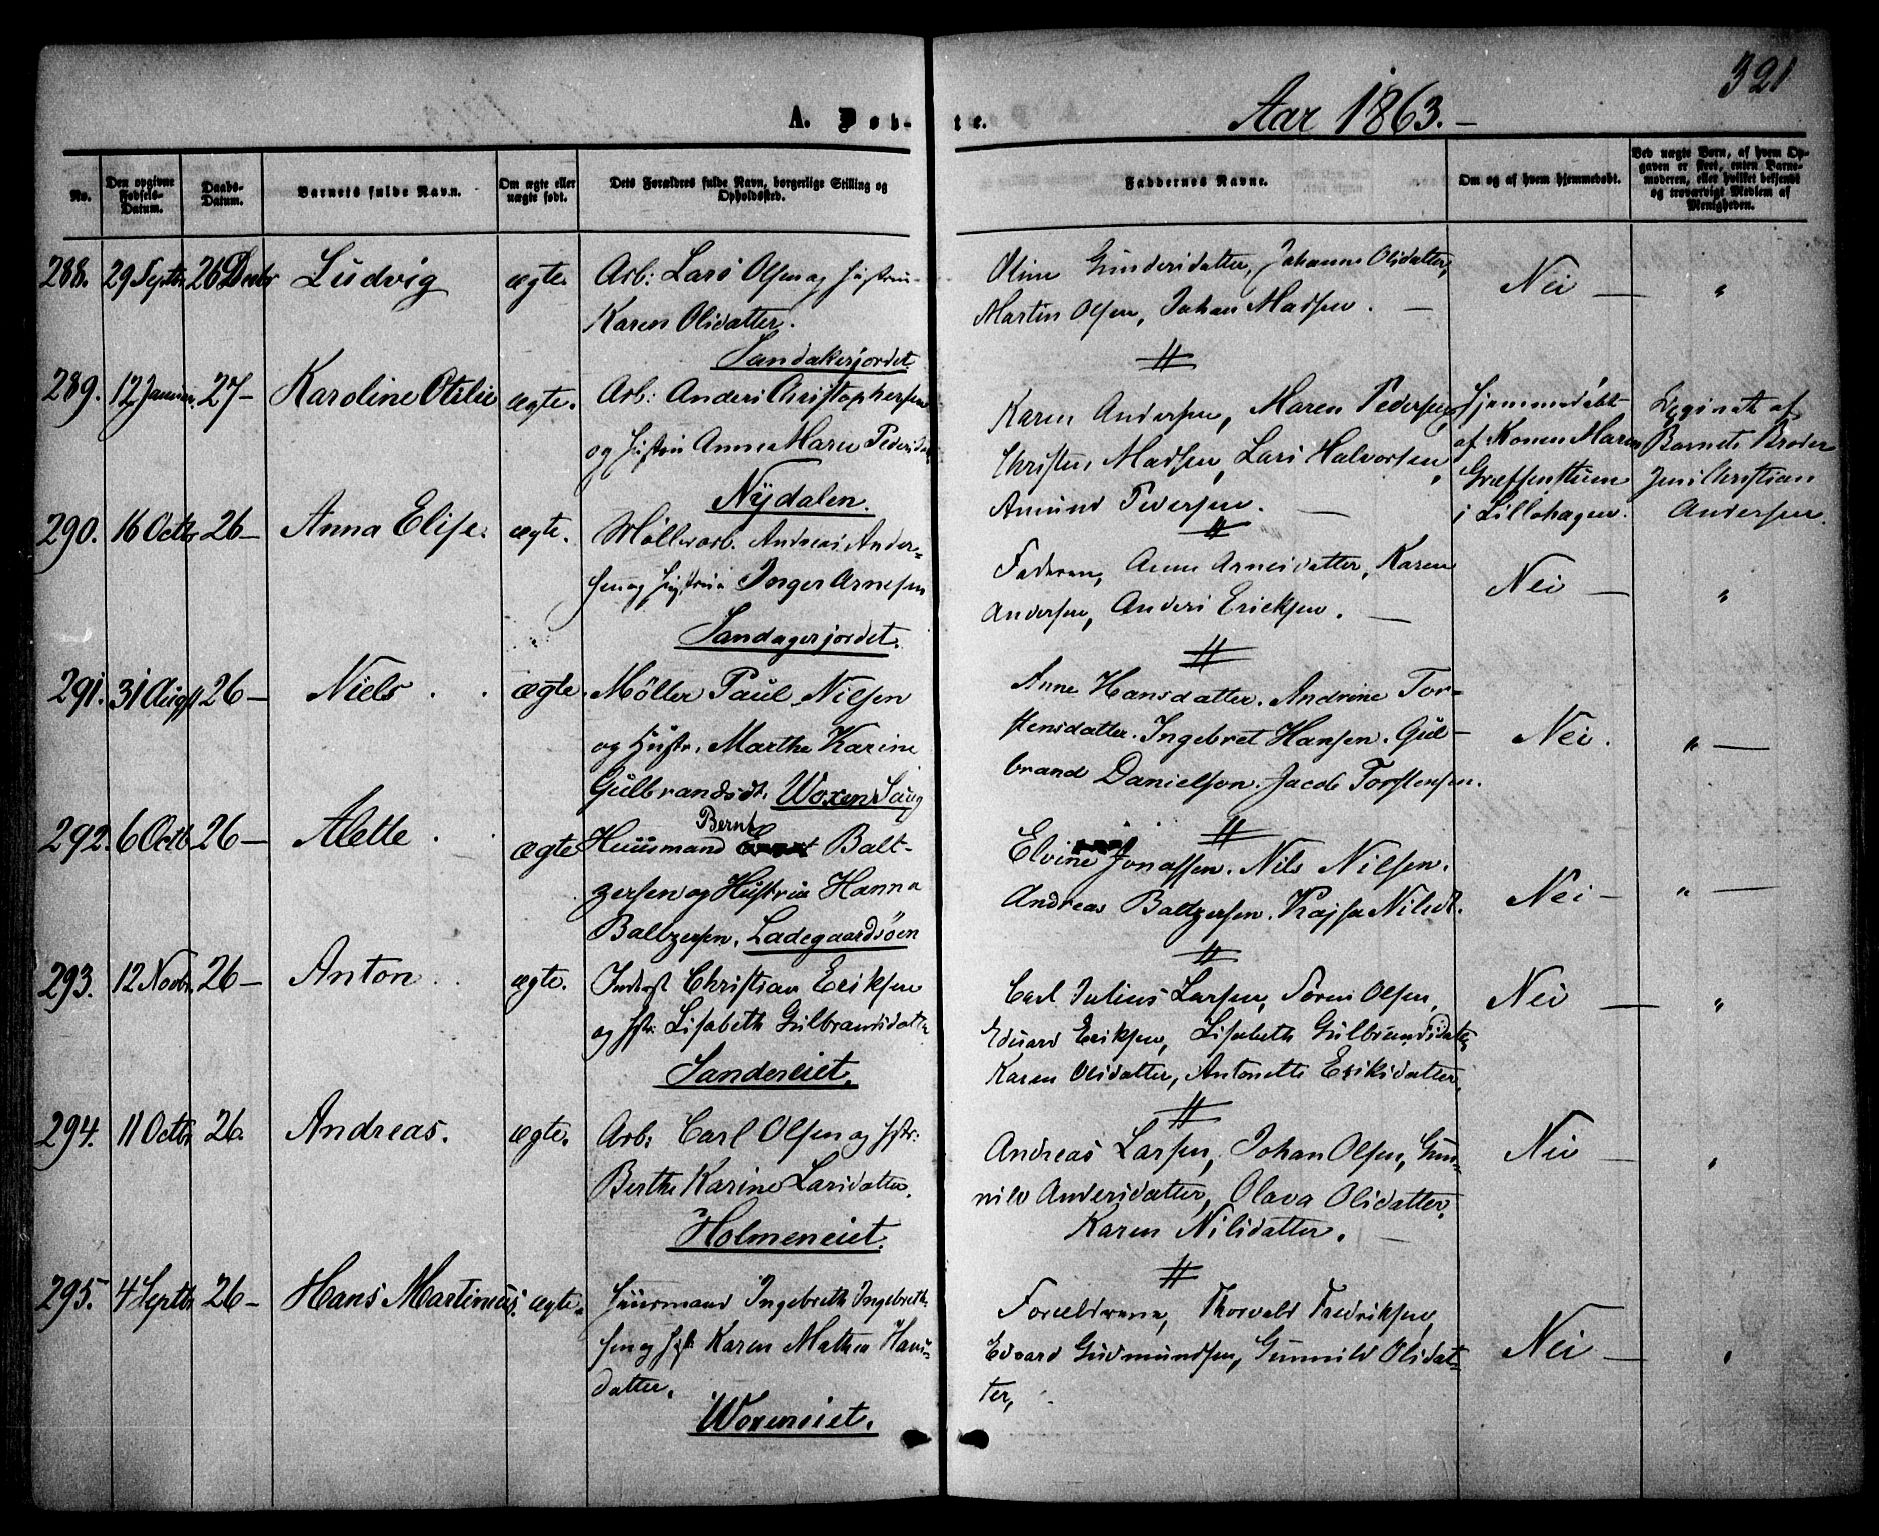 321
A. Døb-te.
Aar 1863.-
No.
Den opgivne Fødsels-Datum.
Daabs-Datum.
Barnets fulde Navn.
Om ægte eller uægte født.
Dets Forældres fulde Navn, borgerlige Stilling og Opholdssted.
Faddernes Navne.
Om og af hvem hjemmedøbt.
Ved uægte Born, af hvem Opgaven er skeet, enten Barnemoderen, eller hvilket bekjendt og troværdigt Medlem af Menigheden.
288. 29 Septbr 26 Decbr Ludvig ægte. Arb: Lars Olsen og Hustru
Karen Olsdatter.
Sandakerjordet
Oline Gundersdatter, Johanne Olsdatter,
Martin Olsen, Johan Madsen. —
Nei — "
289. 12 Januar. 27 - Karoline Otilie ægte. Arb: Anders Christophersen
og Hustru Anne Maren Peders
Nydalen.
Karen Andersen, Maren Pedersen,
Christen Madsen, Lars Halvorsen,
Amund Pedersen. —
Hjemmedøbt
af Konen Maren
Græffensteen
i Lillohagen.
Legitat af
Barnets Broder
Jens Christian
Andersen.
290. 16 Octbr 26 - Anna Elise. ægte. Møllerarb. Andreas Ander-
sen og Hustru Inger Arnesen
Sandagerjordet.
Faderen, Anne Arnesdatter, Karen
Andersen, Anders Ericksen. —
Nei — "
291. 31 Augst 26 - Niels. ægte. Møller Paul Nilsen
og Hustr. Marthe Karine
Gulbrandsdt. Woxen Saug
Anne Hansdatter. Andrine Tor-
stensdatter. Ingebret Hansen. Gul-
brand Danielson. Jacob Torstensen.
Nei. " —
292. 6 Octb. 26 - Alette. ægte Huusmand Bernt Balt-
zersen og Hustru Hanna
Baltzersen. Ladegaardsøen
Elvine Jonassen. Nils Nilsen.
Andreas Baltzersen. Kajsa Nilsdt.
Nei - " —
293. 12 Novbr. 26 - Anton. ægte. Inderst Christian Eriksen
og Hstr: Lisabeth Gulbrandsdatte
Sandereiet.
Carl Julius Larsen, Søren Olsen,
Eduard Eriksen, Lisabeth Gulbrandsdatter
Karen Olsdatter, Antonette Eriksdatter,
Nei — "
294. 11 Octbr. 26. Andreas. ægte. Arb: Carl Olsen og Hstr:
Berthe Karine Larsdatter.
Holmeneiet.
Andreas Larsen, Johan Olsen, Gun-
nild Andersdatter, Olava Olsdatter.
Karen Nilsdatter. —
Nei — "
295. 4 Septbr. 26 - Hans Martineus. ægte. Huusmand Ingebreth Ingebreth-
sen og Hst: Karen Mathea Hans-
datter.
Woxeneiet.
Forældrene, Thorvald Fredriksen,
Edvard Gudmundsen, Gunnild Olsdat-
ter,
Nei — "